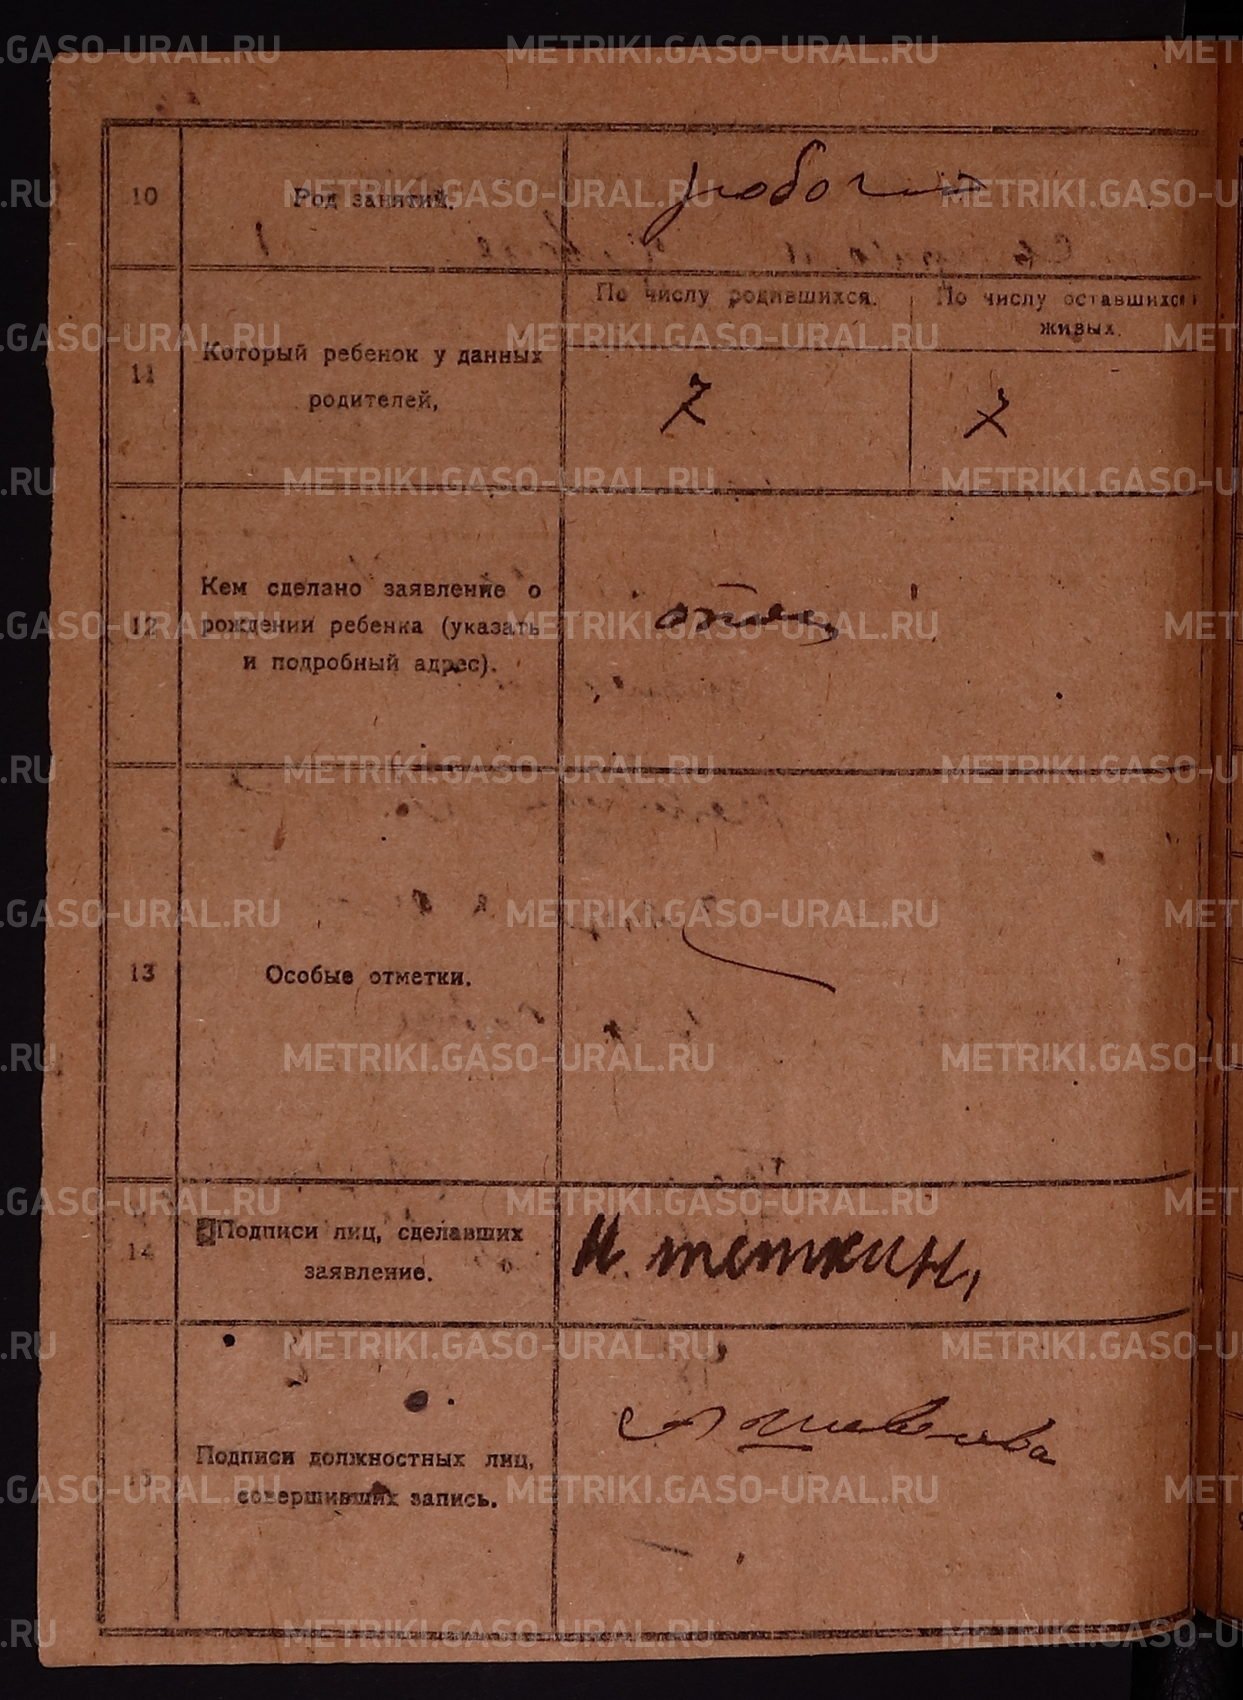 10 Род занятий. рабочий
По числу родившихся. По числу оставшихся
живых.
11 Который ребенок у данных
родителей,
7 7
Кем сделано заявление о
12 рождении ребенка (указать
и подробный адрес).
отец
13 Особые отметки.
14 Подписи лиц, сделавших
заявление.
И. теткин,
15 Подписи должностных лиц,
совершивших запись.
METRIKI.GASO-URAL.RU